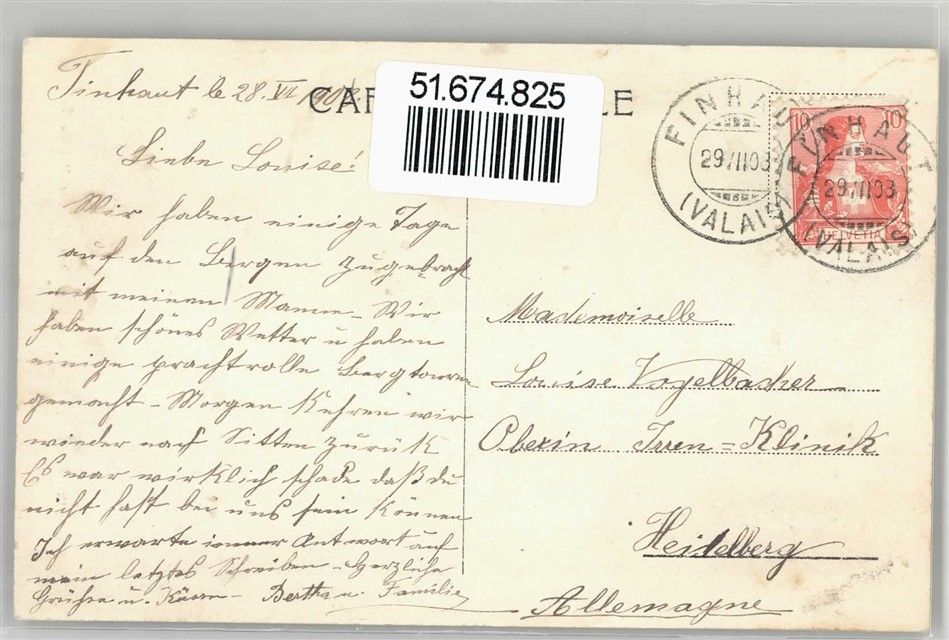 Finhaut le 28. VII 1908
CAR
LE
51.674.825
FINHAUT
29 VII 08
(VALAIS)
10 10
HELVETIA
FINHAUT
29 VII 08
(VALAIS)
Liebe Louise!
Wir haben einige Tage
auf den Bergen zugebracht
mit meinem Manne – Wir
haben schönes Wetter u haben
einige prachtvolle Bergtouren
gemacht – Morgen Kehren wir
wieder nach Sitten zurük
Es war wirklich schade daß du
nicht hast bei uns sein können
Ich erwarte immer Antwort auf
mein letztes Schreiben – Herzliche
Grüße u. Küsse – Bertha u. Familie
Mademoiselle
Louise Vogelbacher
Oberin Irren=Klinik
Heidelberg
Allemagne